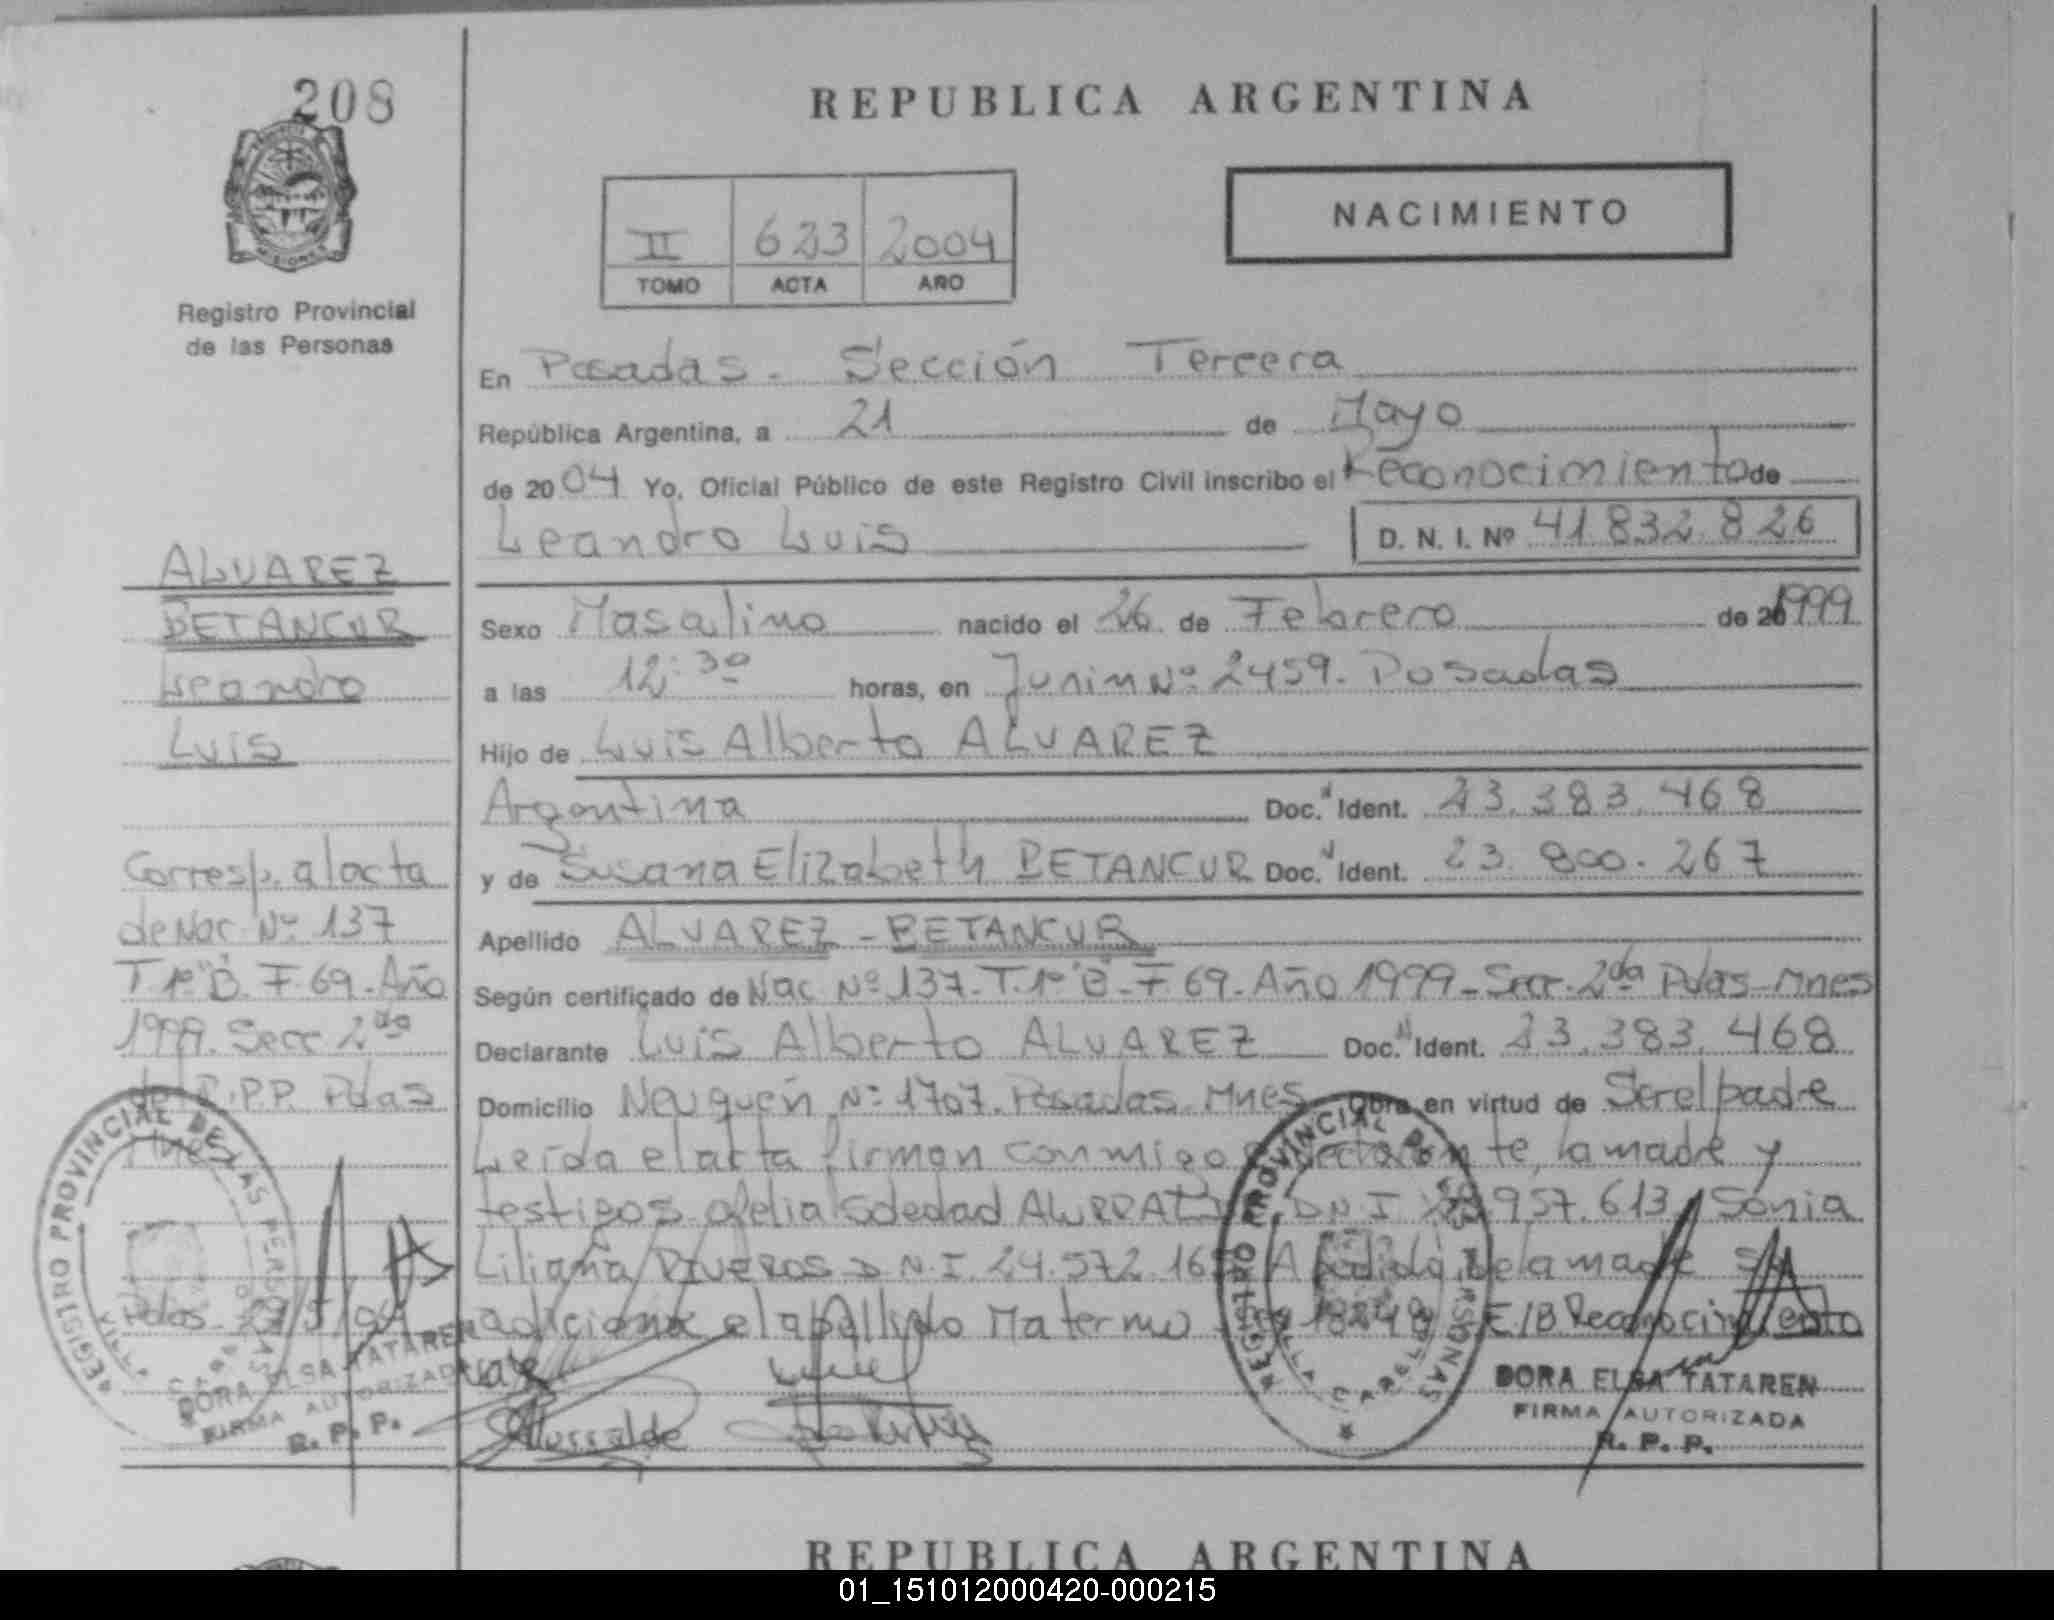 208
REPUBLICA ARGENTINA
NACIMIENTO
II 623 2004
TOMO ACTA AÑO
Registro Provincial
de las Personas
En Posadas. Sección Tercera
República Argentina, a 21 de Mayo
de 2004 Yo, Oficial Público de este Registro Civil inscribo el Reconocimiento de
Leandro Luis D. N. I. Nº 41.832.826
ALVAREZ
BETANCUR
Leandro
Luis
Sexo Masculino nacido el 26 de Febrero de 1999
a las 12:30 horas, en Junin Nº 2459. Posadas
Hijo de Luis Alberto ALVAREZ
Argentina Doc. Ident. 23.383.468
y de Susana Elizabeth BETANCUR Doc. Ident. 23.800.267
Apellido ALVAREZ - BETANCUR
Según certificado de Nac. Nº 137. T. 1º "B". F 69. Año 1999 - Secc. 2da Pdas - Mnes
Declarante Luis Alberto ALVAREZ Doc. Ident. 23.383.468
Domicilio Neuquén Nº 1707. Posadas. Mnes Obra en virtud de Ser el padre
Leída el acta firman conmigo declarante, la madre y
testigos Ofelia Soledad D.N.I. 957.613 Sonia
Liliana RIVEROS D.N.I. 24.572. A pedido de la madre se
adiciona el apellido Materno 18248 E/B Reconocimiento
Vale
Corresp. al acta
de Nac. Nº 137
T. 1º "B". F. 69. Año
1999. Secc 2da
del R.P.P. Pdas
Mnes
Pdas 21/5/04
REGISTRO PROVINCIAL DE LAS PERSONAS
VILLA CABELLO
DORA ELSA TATAREN
FIRMA AUTORIZADA
R. P. P.
REGISTRO PROVINCIAL DE LAS PERSONAS
VILLA CABELLO
DORA ELSA TATAREN
FIRMA AUTORIZADA
R. P. P.
REPUBLICA ARGENTINA
01_151012000420-000215